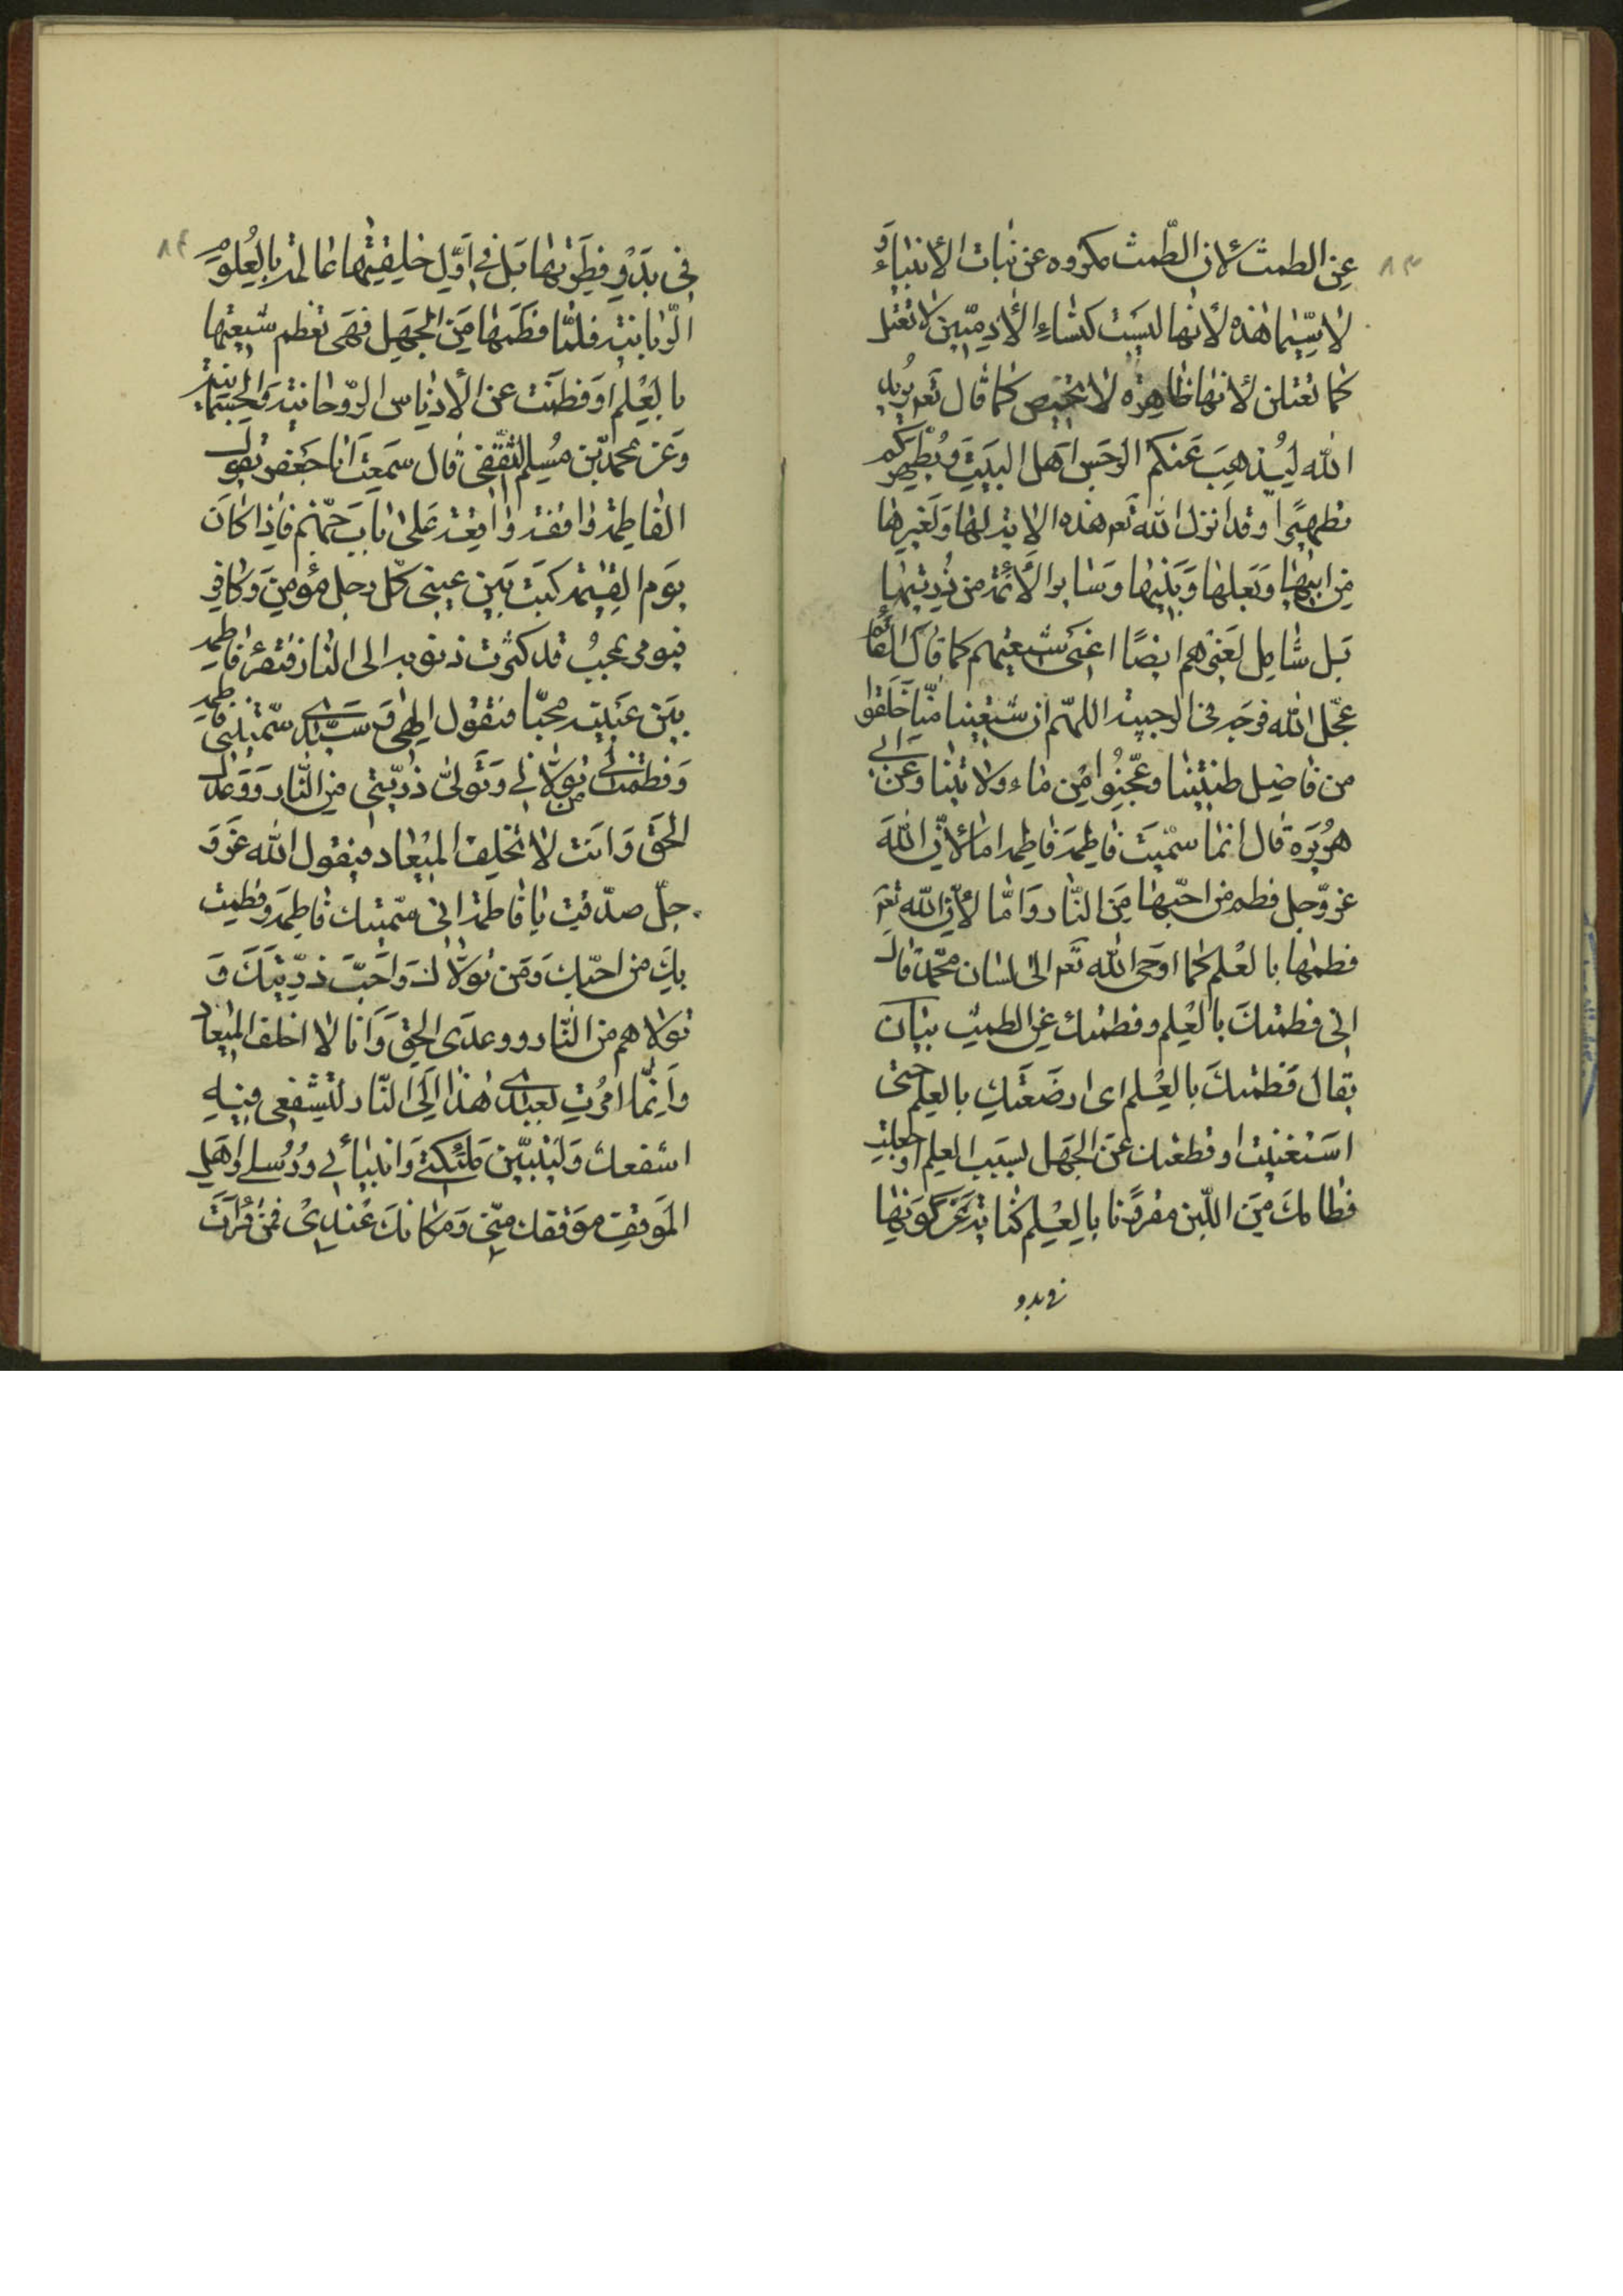 ٨٣
عن الطمث لأن الطمث مكروه عن بنات الأنبياء و
لا سيّما هذه لأنها ليست كنساء الأدميّين لا تعتل
كما تعتلن لأنها طاهرة لا تحيض كما قال تعم يريد
الله ليذهب عنكم الرجس اهل البيت ويطهركم
تطهيرًا وقد انزل الله تعم هذه الاية لها ولغيرها
من ابيها وبعلها وبنيها وسائر الأئمة من ذريتهما
بل شامل لغيرهم ايضًا اعنى شيعتهم كما قال القائم
عجّل الله فرجه في الرجبية اللهمّ ان شيعتنا منّا خلقوا
من فاضل طينتنا وعجّنوا من ماء ولايتنا وعن ابي
هريرة قال انما سميت فاطمة فاطمة اما لأنّ الله
عزوّجل فطم من احبّها من النّار وامّا لأنّ الله تعم
فطمها بالعلم كما اوحى الله تعم الى لسان محمّد قال
انى فطمتك بالعلم وفطمتك عن الطمث بيان
يقال فطمتك بالعلم اى ارضعتك بالعلم حتى
استغنيت او قطعتك عن الجهل بسبب العلم او جعلت
فطامك من اللّبن مقرونًا بالعلم كناية عن كونها
في بدو
٨٤
في بدو فطرتها بل في اوّل خليقتها عالمة بالعلوم
الرّبانية فلمّا فطمها من الجهل فهى تفطم شيعتها
بالعلم او فطمت عن الأدناس الرّوحانية والجسمانية
وعن محمّد بن مسلم الثقفى قال سمعت ابا جعفر يقول
الفاطمة واقفة على باب جهنم فاذا كان
يوم القيمة كتب بين عينى كل رجل مؤمن وكافر
فيومر بمحبّ قد كثرت ذنوبه الى النار فتقرء فاطمة
بين عينيه محبّا فتقول الهى وسيّدى سمّيتنى فاطمة
وفطمت بى من تولّانى وتولّى ذرّيتى من النّار ووعدك
الحق وانت لا تخلف الميعاد فيقول الله عزو
جلّ صدّقت يا فاطمة انى سمّيتك فاطمة وفطمت
بك من احبّك ومن تولّاك واحبّ ذرّيتك و
تولاهم من النّار ووعدى الحق وانا لا اخلف الميعاد
وانّما امرت بعبدى هذا الى النّار لتشفعى فيه
اشفعك وليتبيّن ملئكتى وانبيائى ورسلى واهل
الموقف موقفك منّى ومكانك عندى فمن قرأت